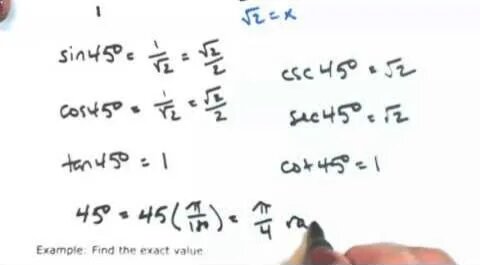 1
√2 = x
sin 45° = 1/√2 = √2/2
csc 45° = √2
cos 45° = 1/√2 = √2/2
sec 45° = √2
tan 45° = 1
cot 45° = 1
45° = 45(π/180) = π/4 ra
Example: Find the exact value